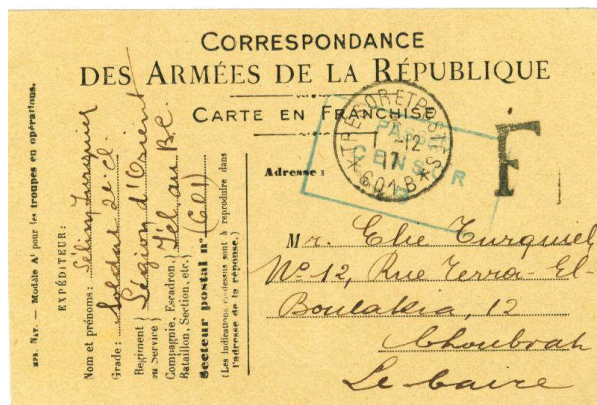 CORRESPONDANCE
DES ARMÉES DE LA RÉPUBLIQUE
CARTE EN FRANCHISE
TRESOR ET POSTES
1 -12
17
* 601 B *
PASSED
CENSOR
F
Adresse :
Mr. Elie Turquiel
No 12, Rue Terra-El-
Boulakia, 12
Choubrah
Le Caire
IMP. NAT. — Modèle A1 pour les troupes en opérations.
EXPÉDITEUR :
Nom et prénoms : Sélim Turquier
Grade : Soldat 2e cl.
Régiment ) Légion d'Orient
ou Service )
Compagnie, Escadron, )
Bataillon, Section, etc. )
Secteur postal n° (601)
(Les indications ci-dessus sont à reproduire dans
l'adresse de la réponse.)